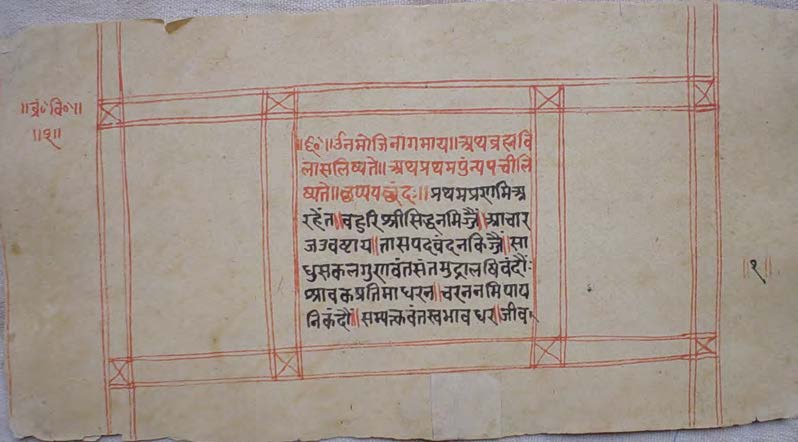 ॥ब्रं॰वि॰॥
॥१॥
॥६०॥उँनमोजिनागमाय॥अथब्रह्मवि
लासलिष्यते॥अथप्रथमपुंन्यपचीलि
ष्यते॥छप्पयछंदः॥प्रथमप्रणमिअ
रहंत॥बहुरिश्रीसिद्धनमिज्जैं॥आचार
जउवष्टाय॥तासपदवंदनकिज्जैं॥सा
धुसकलगुणवंतसंतमुद्रालषिवंदौं॥
श्रावकप्रतिमाधरन॥चरननमिपाप
निकंदौं॥सम्पत्कवंतस्वभावधर॥जीव
॥१